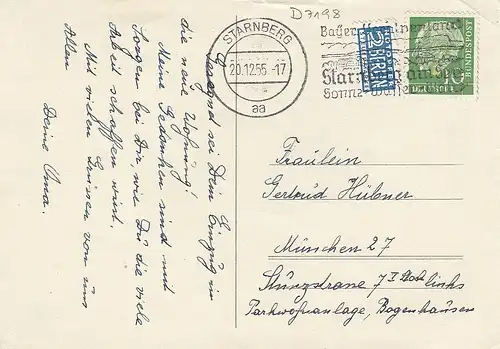 D7198
STARNBERG
20.12.56.-17
aa
Starnberg am See
NOTOPFER
2 BERLIN
DEUTSCHE BUNDESPOST
10
Gesegnet sei Dein Einzug in
die neue Wohnung!
Meine Gedanken sind mit
Sorgen bei Dir wie Du die viele
Arbeit schaffen wirst.
Mit vielen Grüssen von uns
Allen
Deine Oma.
Fräulein
Gertrud Hübner
München 27
Stürzstrasse 7 I Stock links
Parkwohnanlage, Bogenhausen